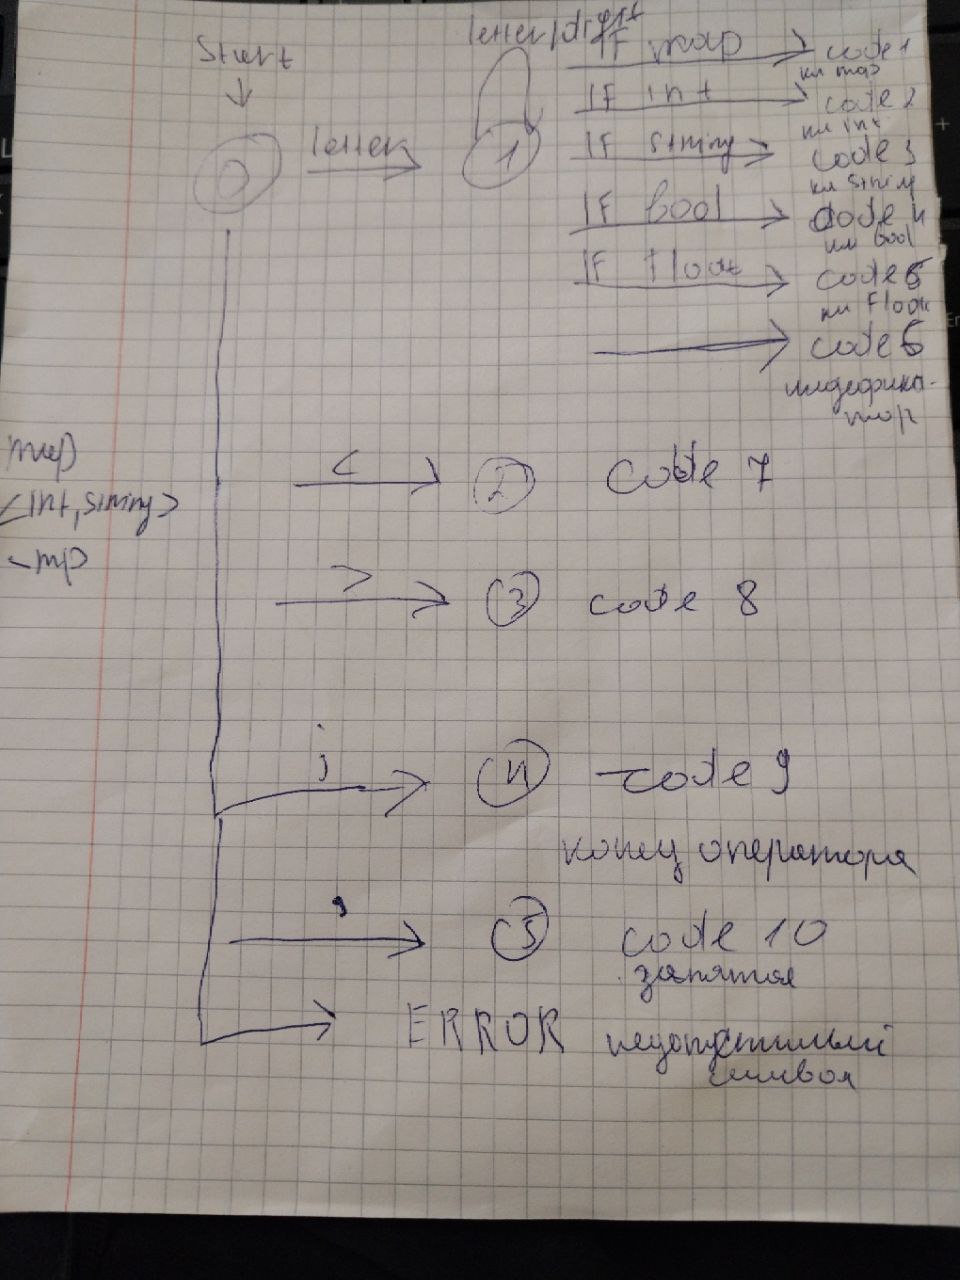 Start
letter/digit
0
letter
1
IF map
code 1
кл map
IF int
code 2
кл int
IF string
code 3
кл string
IF bool
code 4
кл bool
IF float
code 5
кл float
code 6
индефика-
тор
map
<int,string>
mp
<
2
code 7
>
3
code 8
;
4
code 9
конец оператора
,
5
code 10
запятая
ERROR
недопустимый
символ